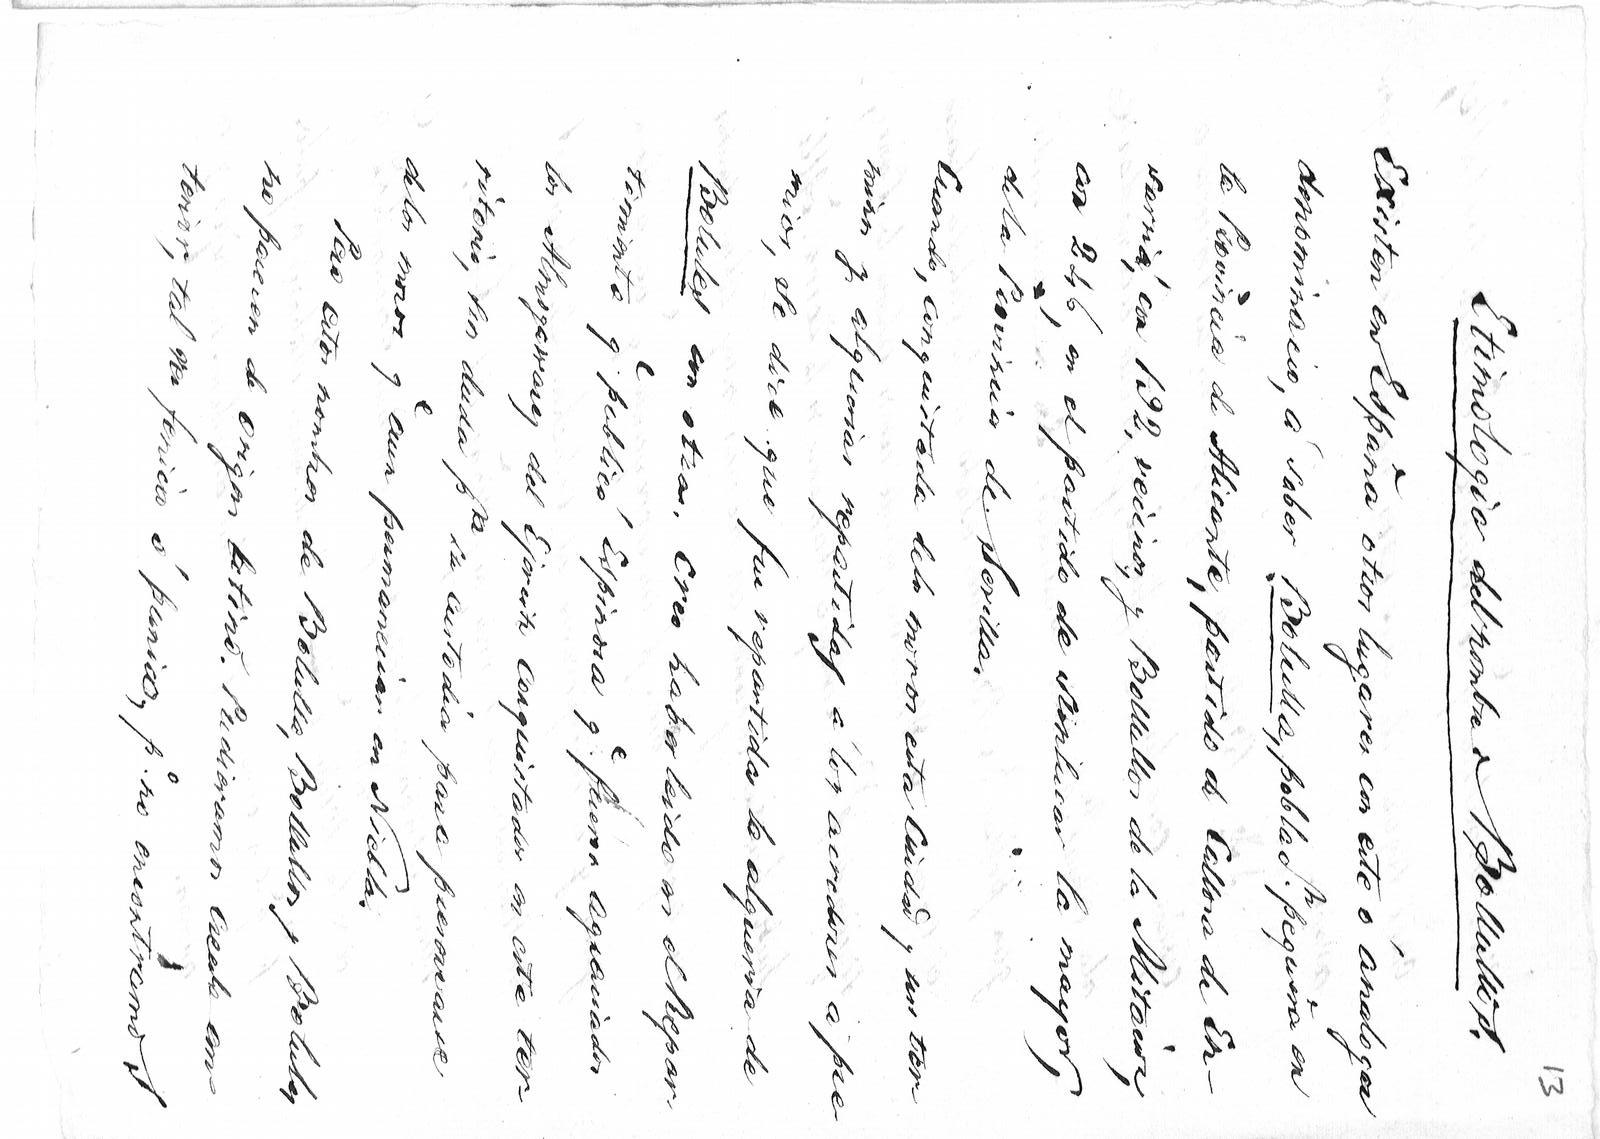 13
Etimologia del nombre d Bollullos.
Existen en España otros lugares con este ó analogon
denominacio, á saber Bolulla, poblac.on pequeña en
la Provincia de Alicante, partido de Callosa de En-
sarriá, con 122, vecinos, y Bollullos de la Mitacion,
con 246, en el partido de Sanlucar la mayor,
de la Provincia de Sevilla.
Cuando, conquistada de los moros esta Ciudad y sus tér-
minos y alquerias repartidas a los acredores a pre
mios, se dice que fue repartida la alqueria de
Bolullos con otras. Creo haber leido en el Repar-
timiento q.e publicó Espinosa q.e fueron agraciados
los Almogavares del Ejercito Conquistador en este ter-
ritorio, sin duda p.ra su custodia para preservarse
de los moros q.e aun permanecian en Niebla.
Pero estos nombres de Bolulla, Bollullos, y Bolullos
no parecen de origen latino. Pudieramos creerle an-
terior, tal vez fenicio ó punico, p.o no encontramos